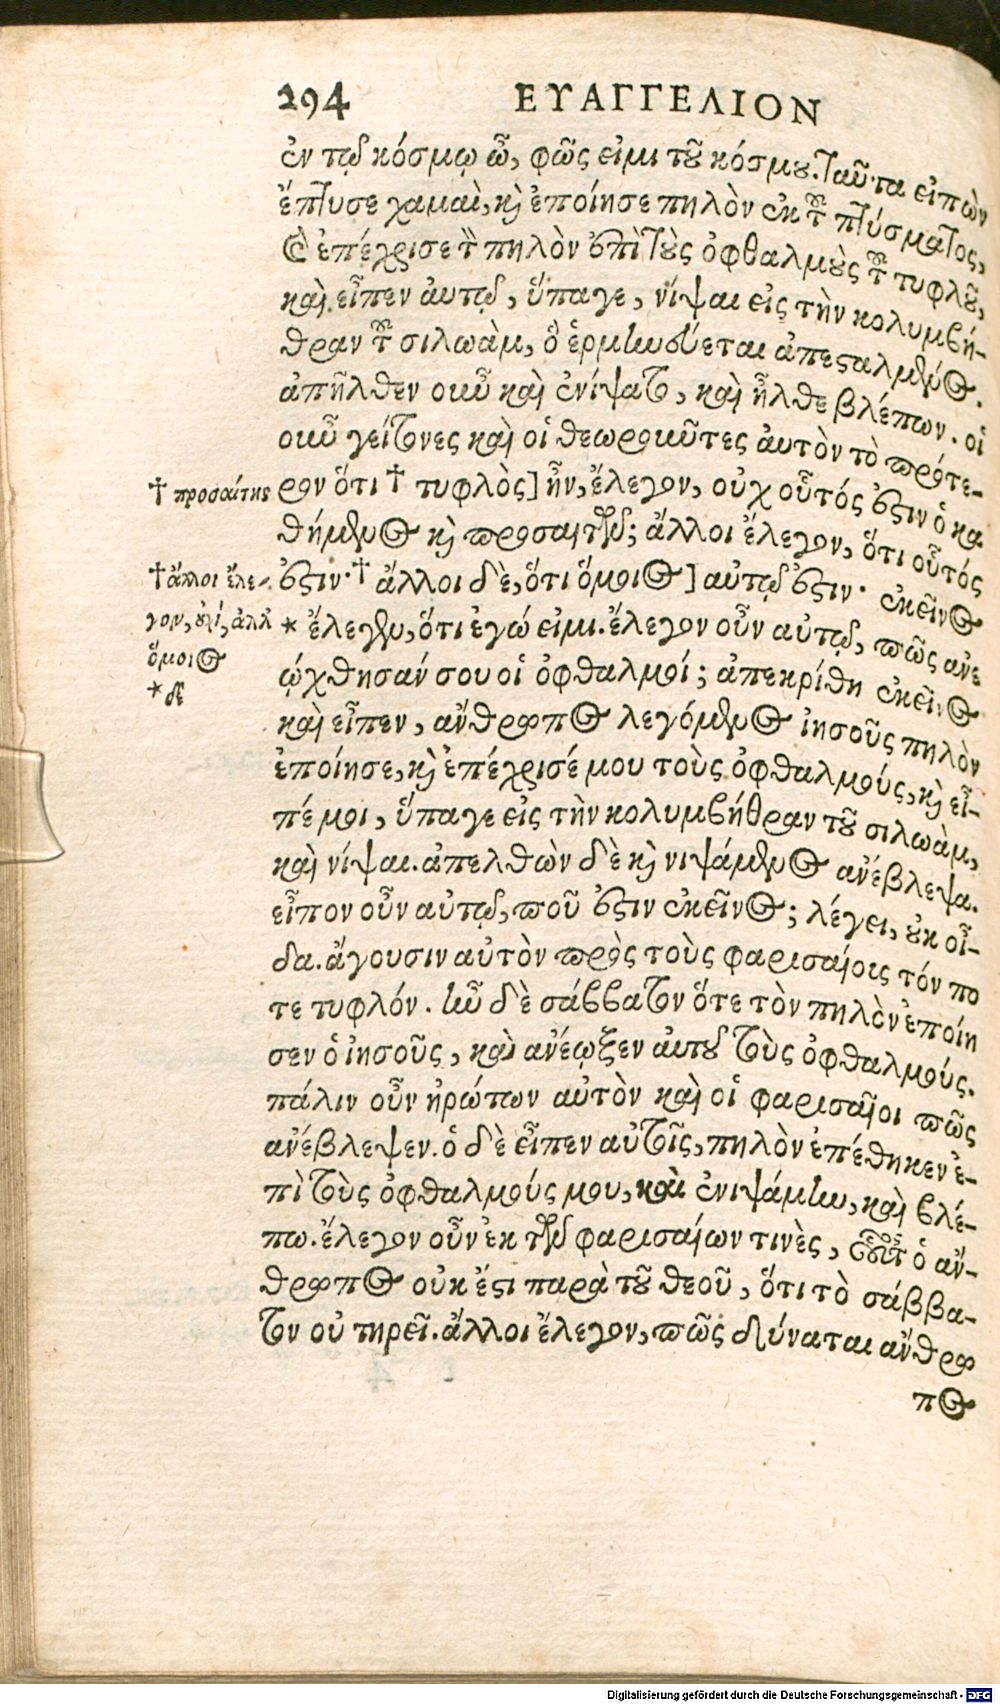 294 ΕΥΑΓΓΕΛΙΟΝ
ἐν τῷ κόσμῳ ὦ, φῶς εἰμι τοῦ κόσμου. Ταῦτα εἰπὼν
ἔπτυσε χαμαὶ, καὶ ἐποίησε πηλὸν ἐκ τοῦ πτύσματος,
καὶ ἐπέχρισε τὸν πηλὸν ἐπὶ τοὺς ὀφθαλμοὺς τοῦ τυφλοῦ,
καὶ εἶπεν αὐτῷ, ὕπαγε, νίψαι εἰς τὴν κολυμβή-
θραν τοῦ σιλωὰμ, ὃ ἑρμηνεύεται ἀπεσταλμένος.
ἀπῆλθεν οὖν καὶ ἐνίψατο, καὶ ἦλθε βλέπων. οἱ
οὖν γείτονες καὶ οἱ θεωροῦντες αὐτὸν τὸ πρότε-
† προσαίτης ρον ὅτι † τυφλὸς] ἦν, ἔλεγον, οὐχ οὗτός ἐστιν ὁ κα
θήμενος καὶ προσαιτῶν; ἄλλοι ἔλεγον, ὅτι οὗτός
† ἄλλοι ἔλε- ἐστιν· † ἄλλοι δὲ, ὅτι ὅμοιος] αὐτῷ ἐστιν· ἐκεῖνος
γον, οὐχί, ἀλλ' * ἔλεγεν, ὅτι ἐγώ εἰμι. ἔλεγον οὖν αὐτῷ, πῶς ἀνε
ὅμοιος ῴχθησάν σου οἱ ὀφθαλμοί; ἀπεκρίθη ἐκεῖνος
* δὲ
καὶ εἶπεν, ἄνθρωπος λεγόμενος ἰησοῦς πηλὸν
ἐποίησε, καὶ ἐπέχρισέ μου τοὺς ὀφθαλμούς, καὶ εἶ-
πέ μοι, ὕπαγε εἰς τὴν κολυμβήθραν τοῦ σιλωὰμ,
καὶ νίψαι. ἀπελθὼν δὲ καὶ νιψάμενος ἀνέβλεψα.
εἶπον οὖν αὐτῷ, ποῦ ἐστιν ἐκεῖνος; λέγει, οὐκ οἶ-
δα. ἄγουσιν αὐτὸν πρὸς τοὺς φαρισαίοις τόν πο
τε τυφλόν. ἦν δὲ σάββατον ὅτε τὸν πηλὸν ἐποίη
σεν ὁ ἰησοῦς, καὶ ἀνέῳξεν αὐτοῦ τοὺς ὀφθαλμούς.
πάλιν οὖν ἠρώτων αὐτὸν καὶ οἱ φαρισαῖοι πῶς
ἀνέβλεψεν. ὁ δὲ εἶπεν αὐτοῖς, πηλὸν ἐπέθηκεν ἐ-
πὶ τοὺς ὀφθαλμούς μου, καὶ ἐνιψάμην, καὶ βλέ-
πω. ἔλεγον οὖν ἐκ τῶν φαρισαίων τινὲς, οὗτος ὁ ἄν-
θρωπος οὐκ ἔστι παρὰ τοῦ θεοῦ, ὅτι τὸ σάββα-
τον οὐ τηρεῖ. ἄλλοι ἔλεγον, πῶς δύναται ἄνθρω
πος
Digitalisierung gefördert durch die Deutsche Forschungsgemeinschaft - DFG